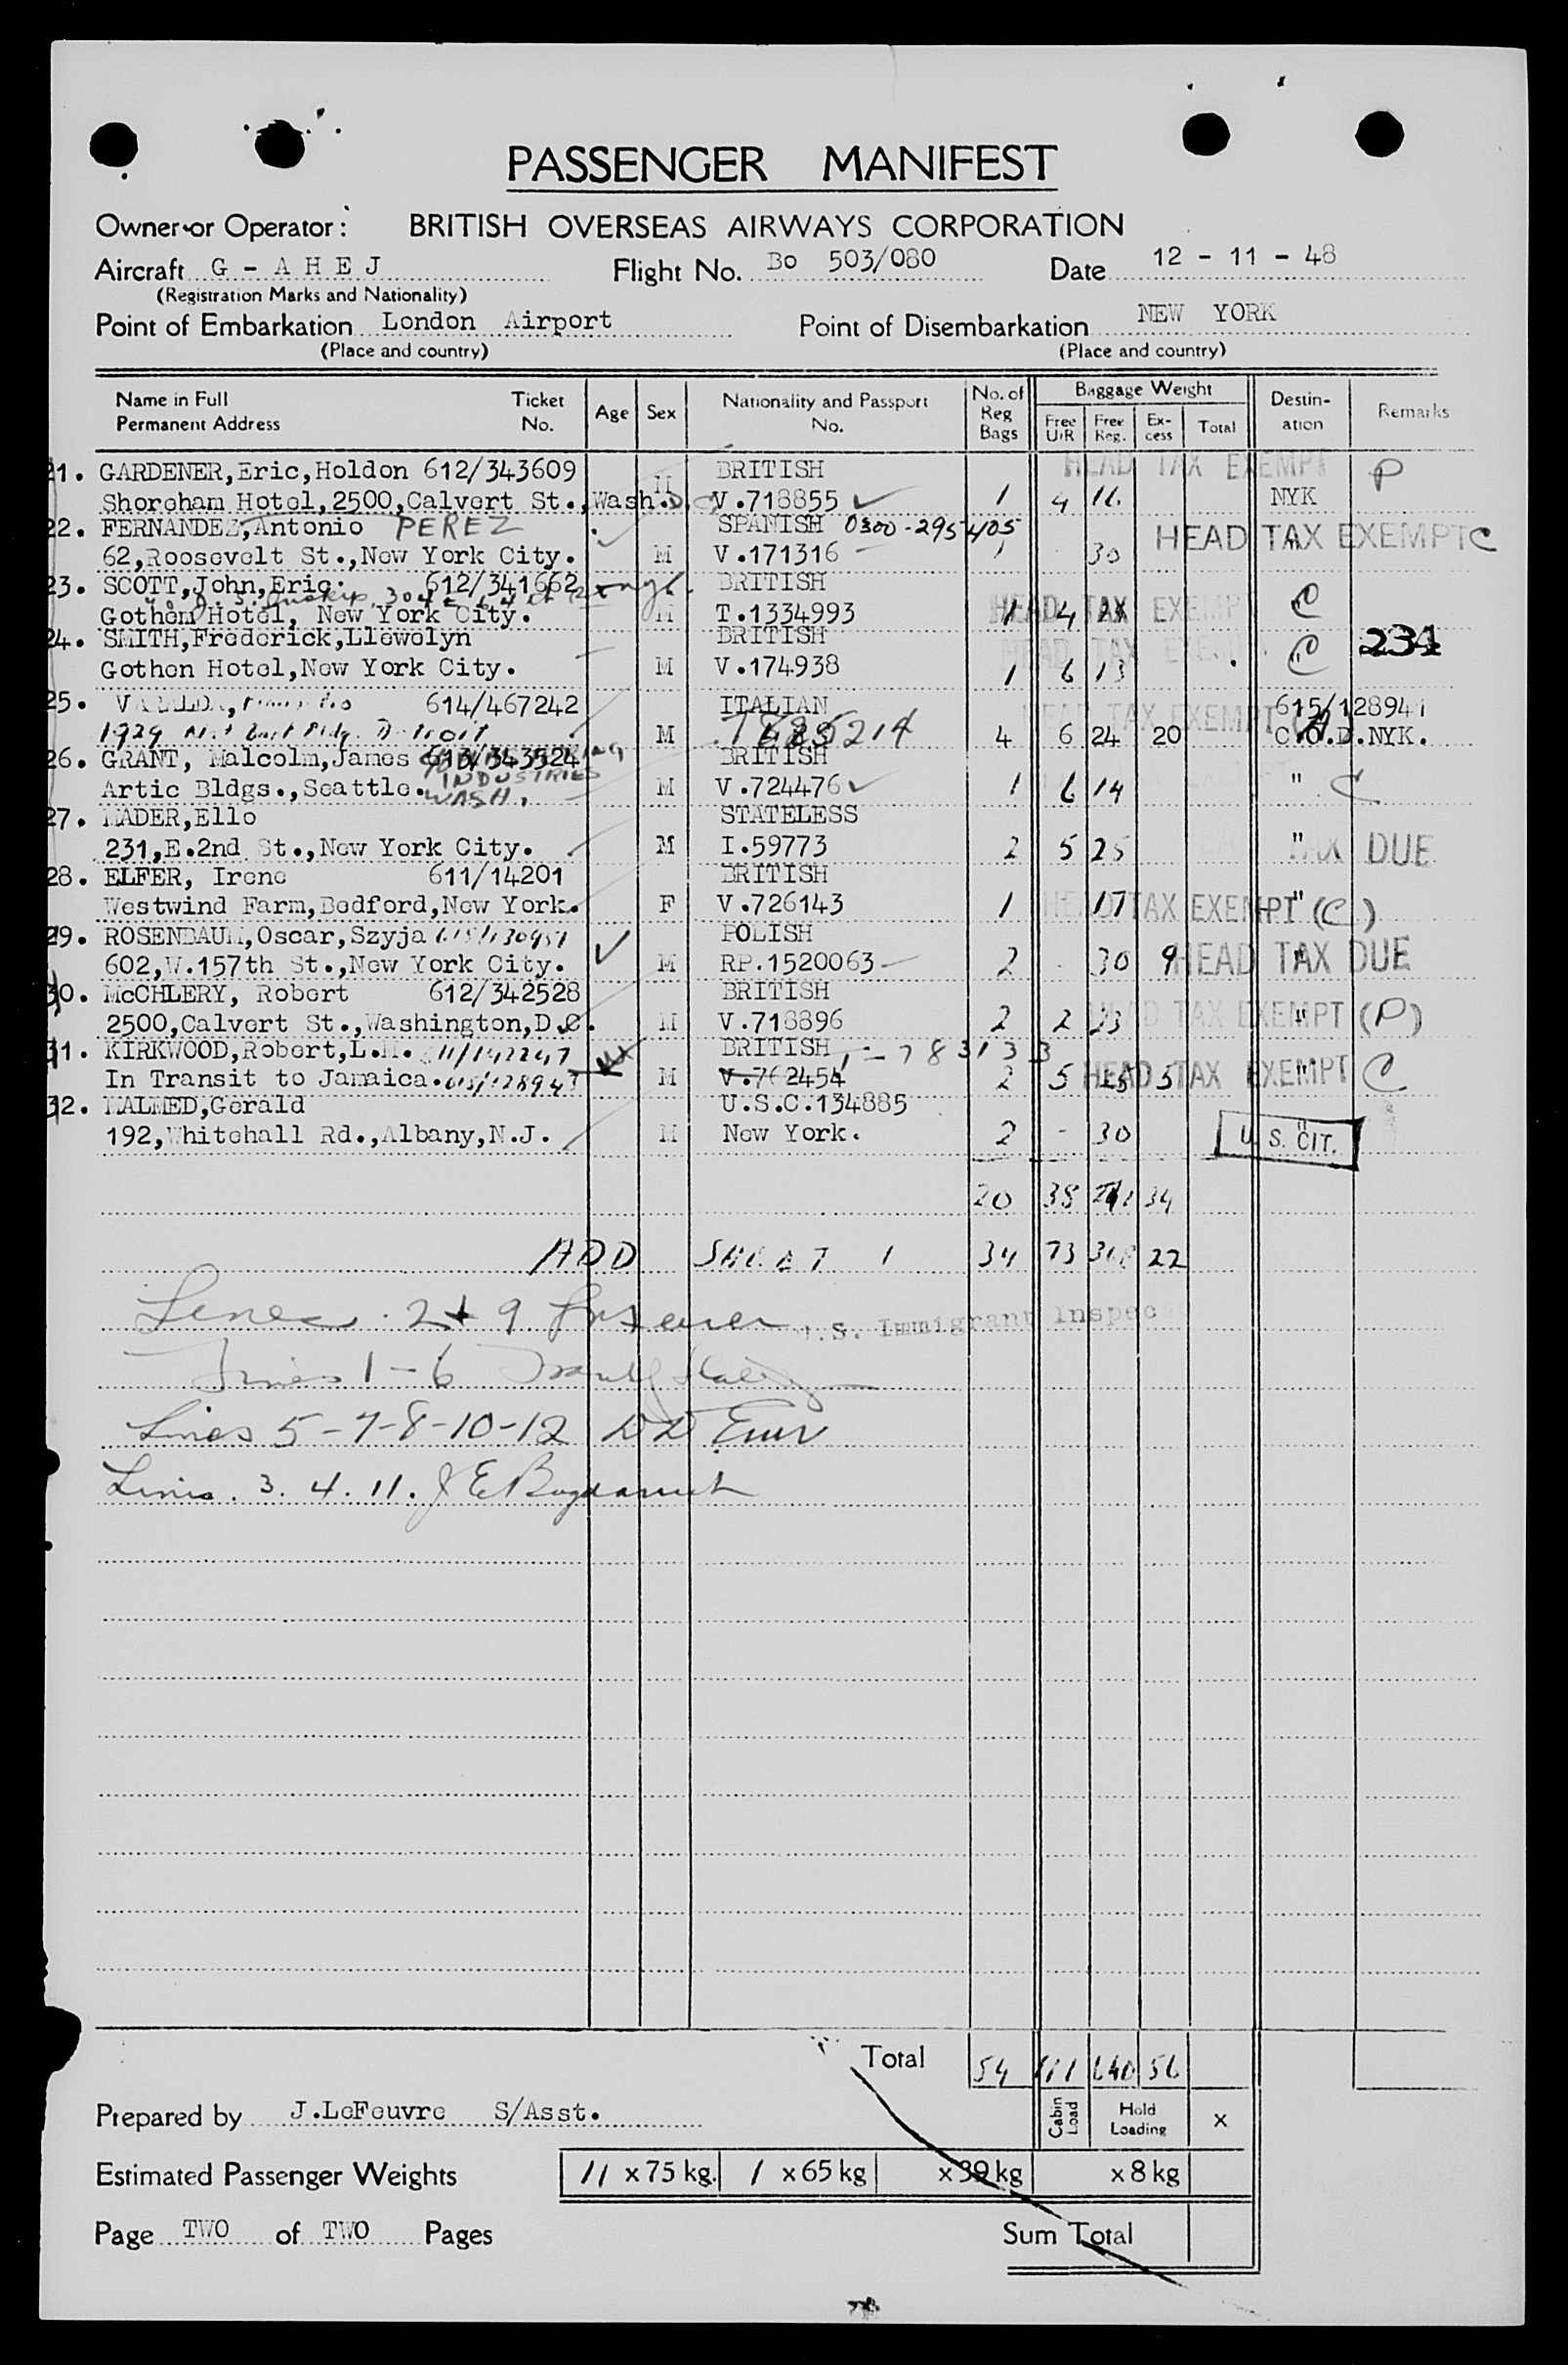 PASSENGER MANIFEST
Owner or Operator: BRITISH OVERSEAS AIRWAYS CORPORATION
Aircraft G - A H E J Flight No. Bo 503/080 Date 12 - 11 - 48
(Registration Marks and Nationality)
Point of Embarkation London Airport Point of Disembarkation NEW YORK
(Place and country) (Place and country)
Name in Full Ticket Age Sex Nationality and Passport No. of Baggage Weight Destin- Remarks
Permanent Address No. No. Reg Bags Free U/R Free Reg. Ex-cess Total ation
21. GARDENER,Eric,Holdon 612/343609 BRITISH HEAD TAX EXEMPT P
Shoreham Hotel,2500,Calvert St.,Wash.D.C. M V.718855 1 4 16 NYK
22. FERNANDEZ,Antonio PEREZ SPANISH 0300-295405 HEAD TAX EXEMPT C
62,Roosevelt St.,New York City. M V.171316 1 30 "
23. SCOTT,John,Eric. 612/341662 BRITISH
Gothem Hotel, New York City. M T.1334993 1 4 HEAD TAX EXEMPT " C
24. SMITH,Frederick,Llewelyn BRITISH HEAD TAX EXEMPT 234
Gothen Hotel,New York City. M V.174938 1 6 13 " C
25. 614/467242 ITALIAN 615/128941
1929 M 4 6 24 20 HEAD TAX EXEMPT (A) C.O.D.NYK.
26. GRANT, Malcolm,James 613/343524 BRITISH
Artic Bldgs.,Seattle. INDUSTRIES WASH. M V.724476 1 6 14 " C
27. MADER,Ello STATELESS
231,E.2nd St.,New York City. M I.59773 2 5 25 " TAX DUE
28. ELFER, Irene 611/14201 BRITISH
Westwind Farm,Bedford,New York. F V.726143 1 17 HEAD TAX EXEMPT " (C)
29. ROSENBAUM,Oscar,Szyja POLISH
602,W.157th St.,New York City. M RP.1520063 2 - 30 9 HEAD TAX DUE "
30. McCHLERY, Robert 612/342528 BRITISH
2500,Calvert St.,Washington,D.C. M V.718896 2 2 23 HEAD TAX EXEMPT " (P)
31. KIRKWOOD,Robert,L.M. BRITISH 783133
In Transit to Jamaica. 615/128943 M V.762454 2 5 5 HEAD TAX EXEMPT " C
32. MALMED,Gerald U.S.C.134885
192,Whitehall Rd.,Albany,N.J. M New York. 2 - 30 " U.S. CIT.
20 38 34
ADD SHEET 1 34 73 22
Lines 2 + 9 U.S. Immigrant Inspec
Lines 1-6
Lines 5-7-8-10-12
Lines. 3. 4. 11. J E
Total 54 111 56
Prepared by J.LeFeuvre S/Asst. Cabin Load Hold Loading x
Estimated Passenger Weights 11 x 75 kg. 1 x 65 kg x 39 kg x 8 kg
Page TWO of TWO Pages Sum Total